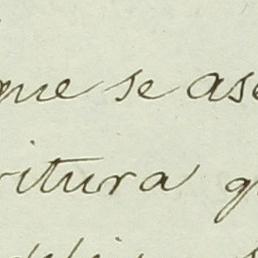 que se ase
ritura q